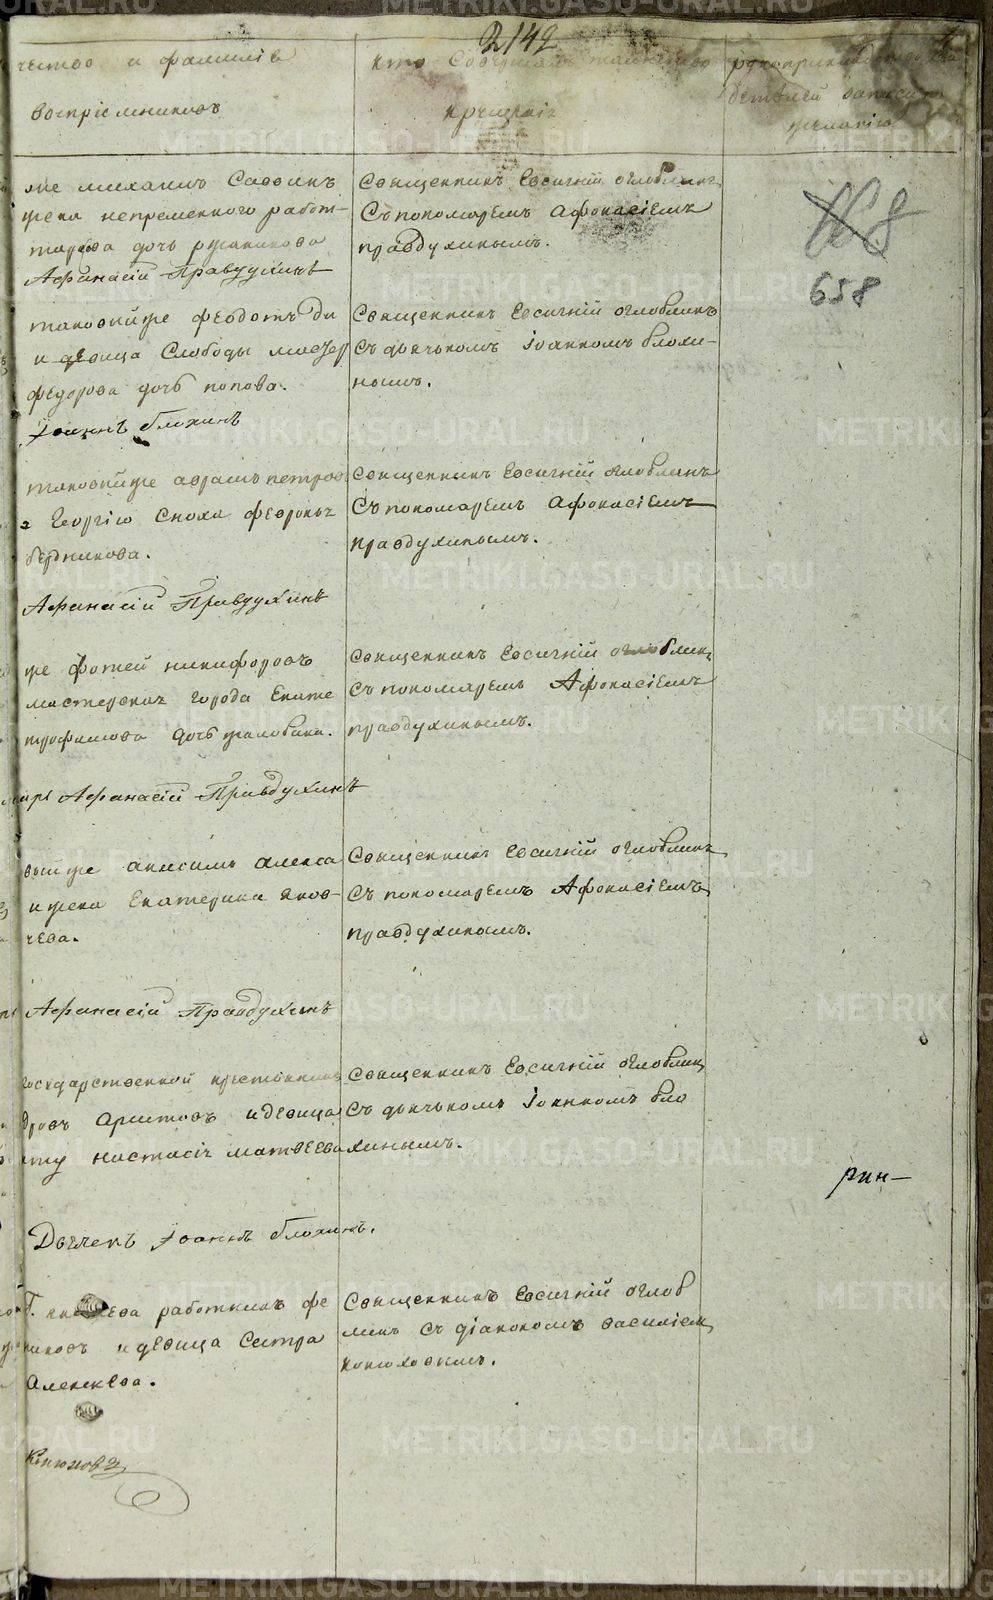 2142
чество и фамилiя
воспрiемниковъ
кто совершалъ таинство
крещенiя
рукоприкладство сви
детелей записи
желанiю
же михаилъ Саввинъ
жена непременнаго работ-
дочь русанкова
Афанасiй Правдухинъ
Священникъ Евсигнiй оглоблинъ
Съ пономаремъ Афонасiемъ
правдухинымъ.
168
658
таковыйже федотъ ди
и девица Слободы
федорова дочь попова.
Iоаннъ блохинъ
Священникъ Евсигнiй оглоблинъ
Съ дьячькомъ Iоанномъ блохи-
нымъ.
таковыйже аврамъ петров
Георгiю Сноха феврон
бердникова.
Афанасiй Правдухинъ
Священникъ Евсигнiй оглоблинъ
Съ пономаремъ Афонасiемъ
правдухинымъ.
же фотей никифоровъ
мастерска города Екате
трофимова дочь жалобина.
Афанасiй Правдухинъ
Священникъ Евсигнiй оглоблин
Съ пономаремъ Афонасiемъ
правдухинымъ.
выйже анисимъ алекса
и жена Екатерина яков-
чева.
Афанасiй Правдухинъ
Священникъ Евсигнiй оглоблинъ
Съ пономаремъ Афонасiемъ
правдухинымъ.
государственной крестьянинъ
дровъ аристовъ и девица
настасiя матвеева
Дьячекъ Iоаннъ блохинъ.
Священникъ Евсигнiй оглоблин
Съ дьячькомъ Iоанномъ бло
хинымъ.
рин-
работникъ фе
никовъ и девица Сестра
Алексева.
Конюховъ
Священникъ Евсигнiй оглоб
линъ Съ дiакономъ василiем
конюховымъ.
METRIKI.GASO-URAL.RU